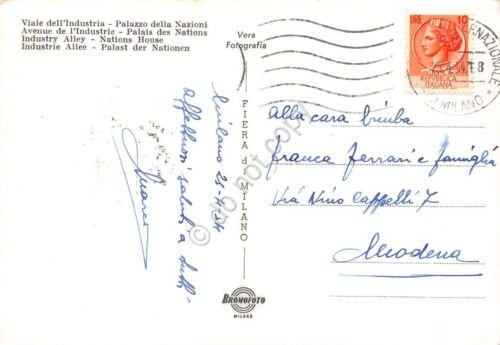 Viale dell'Industria - Palazzo della Nazioni
Avenue de l'Industrie - Palais des Nations
Industry Alley - Nations House
Industrie Allee - Palast der Nationen
Vera
Fotografia
LIRE 10
REPVBBLICA
ITALIANA
MILANO
Milano 25-4-54
affettuosi saluti a tutti
FIERA di MILANO
alla cara bimba
Franca Ferrari e famiglia
Via Nino Cappelli 7
Modena
BROMOFOTO
MILANO
do not copy